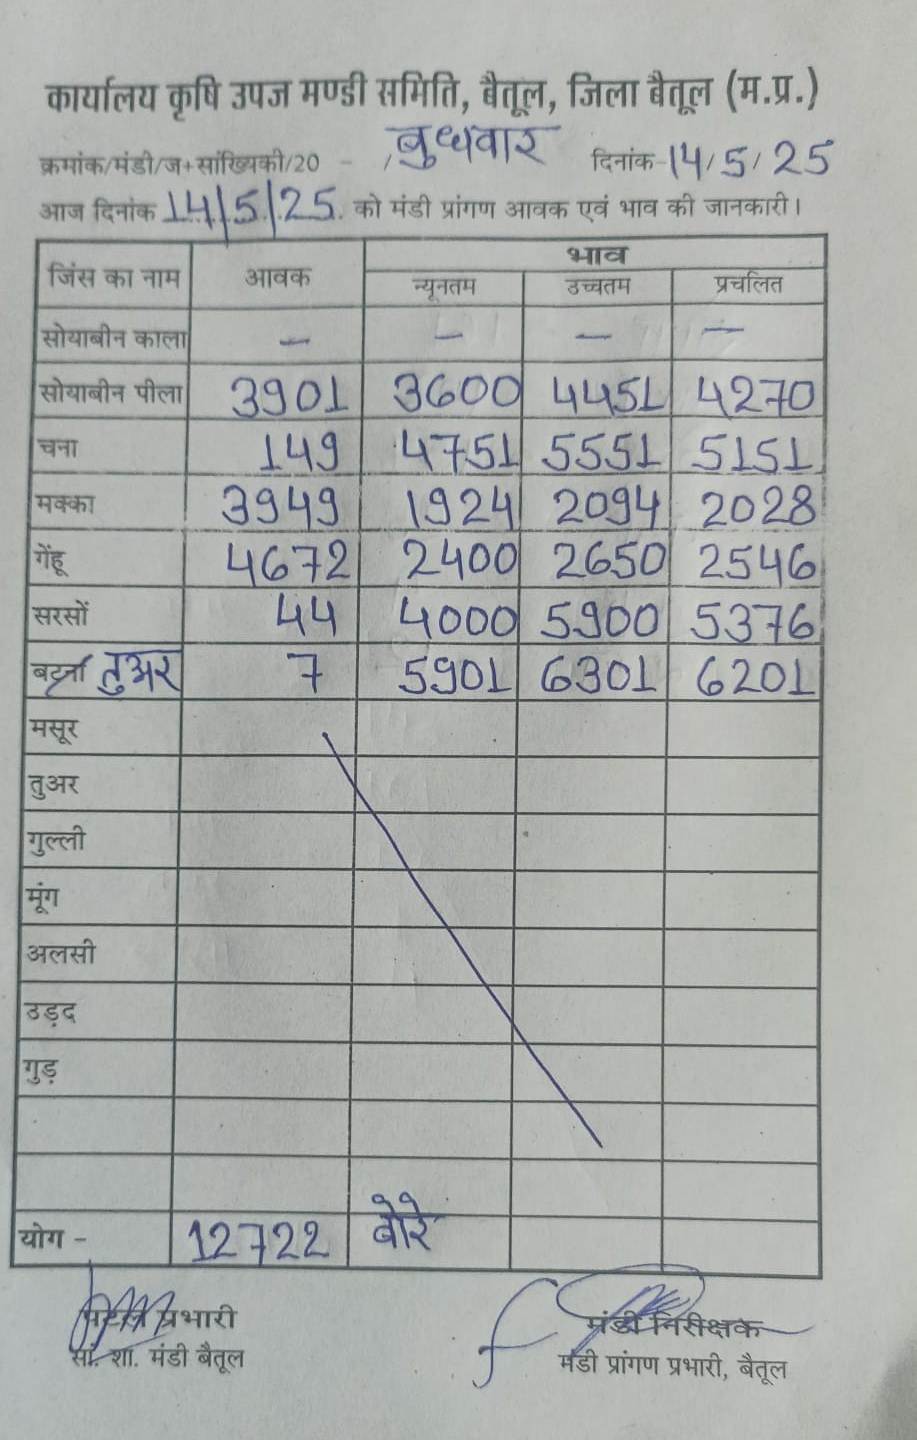 कार्यालय कृषि उपज मण्डी समिति, बैतूल, जिला बैतूल (म.प्र.)
क्रमांक/मंडी/ज+सांख्यिकी/20 - / बुधवार दिनांक-14/5/25
आज दिनांक 14/5/25. को मंडी प्रांगण आवक एवं भाव की जानकारी।
जिंस का नाम आवक भाव
न्यूनतम उच्चतम प्रचलित
सोयाबीन काला — — — —
सोयाबीन पीला 3901 3600 4451 4270
चना 149 4751 5551 5151
मक्का 3949 1924 2094 2028
गेंहू 4672 2400 2650 2546
सरसों 44 4000 5900 5376
बटना तुअर 7 5901 6301 6201
मसूर
तुअर
गुल्ली
मूंग
अलसी
उड़द
गुड़
योग - 12722 बोरे
प्रभारी मंडी निरीक्षक
सां. शा. मंडी बैतूल मंडी प्रांगण प्रभारी, बैतूल